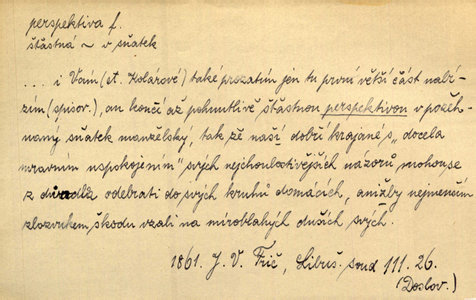 perspektiva f.
šťastná ~ v sňatek
... i Vám (A. Kolárové) také prozatím jen tu první větší část nabí-
zím (spisov.), an končí až pohnutlivě šťastnou perspektivou v požeh-
naný sňatek manželský, tak že naši dobří krajané s „docela
mravním uspokojením" svých nejchoulostivějších názorů mohou se
z divadla odebrati do svých kruhů domácích, anižby nejmenším
zlozvukem škodu vzali na miroblahých duších svých.
1861. J. V. Frič, Libuš. soud 111. 26.
(Doslov.)